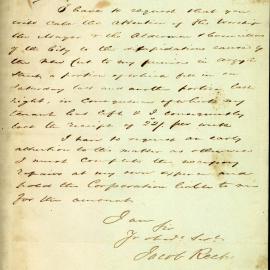 I have to request that you
will call the attention of His Worship
the Mayor & the Aldermen & Councillors
of the City to the dilapidations caused by
the New Cut to my premises in Argyle
Street a portion of which fell in on
Saturday last and another portion last
night, in consequence of which my
tenant has left & I consequently
lost the receipt of 22/ per week
I have to request an early
attention to this matter as otherwise
I must complete the necessary
repairs at my own expense and
hold the Corporation liable to me
for the amount.
I am
Sir
Yr obedt Servt
Jacob